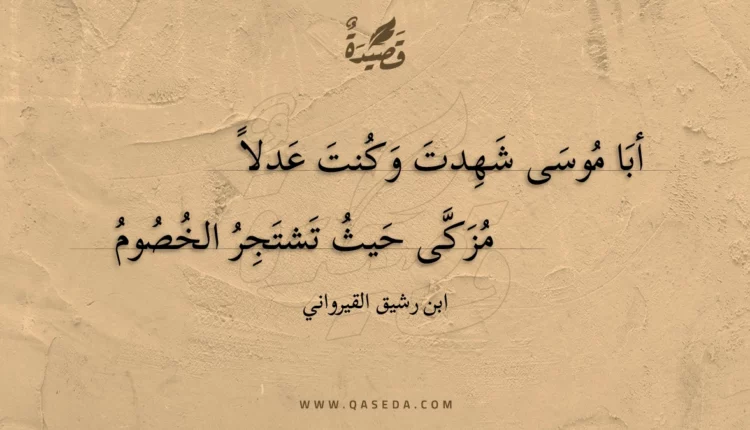 قَصِيدَةٌ
أبَا مُوسَى شَهِدتَ وَكُنتَ عَدلاً
مُزَكَّى حَيثُ تَشتَجِرُ الخُصُومُ
ابن رشيق القيرواني
WWW.QASEDA.COM